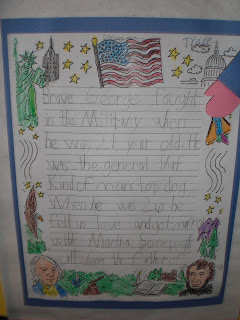 Brave George fought
in the Military when
he was 21 year old. He
was the general that
Kind of means top dog.
When he was 26 he
Fell in love and got mary
with Martha